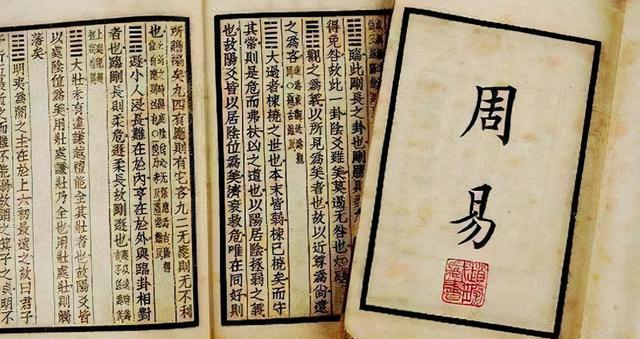 周易
䷒臨此剛長之卦也剛勝則柔
得免咎故此一卦陰爻雖美莫過无咎也
䷓觀之為義以所見為美者也故以近尊為尚遠
之為吝
䷛大過者棟橈之世也本末皆弱棟已橈矣而守
其常則是危而弗扶凶之道也以陽居陰拯弱之義
也故陽爻皆以居陰位為美濟衰救危唯在同好則
所贍褊矣九四有應則有它吝九二无應則无不利
也
䷠遯小人浸長難在於內亨在於外與臨卦相對
者也臨剛長則柔危遯柔長故剛遯也
䷡大壯未有違謙越禮能全其壯者也故陽爻皆
以處陰位為美用壯處謙壯乃全也用壯處壯則觸
藩矣
䷣明夷為闇之主在於上六初最遠之故曰君子
故謂之箕子之貞明不